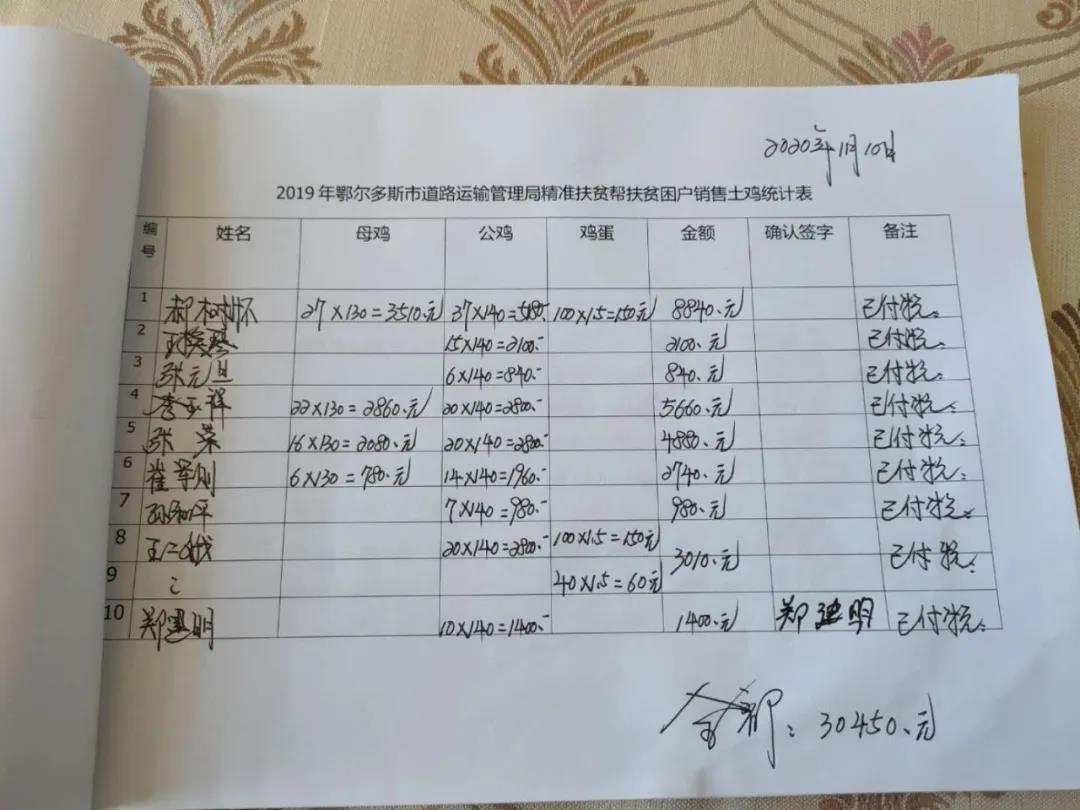 2020年1月10日
2019年鄂尔多斯市道路运输管理局精准扶贫帮扶贫困户销售土鸡统计表
编号 姓名 母鸡 公鸡 鸡蛋 金额 确认签字 备注
1 郝树怀 27×130=3510.元 37×140=5180.- 100×1.5=150元 8840.元 已付完.
2 15×140=2100.- 2100.元 已付完.
3 张元旦 6×140=840.- 840.元 已付完.
4 李玉祥 22×130=2860.元 20×140=2800.- 5660.元 已付完.
5 张荣 16×130=2080.元 20×140=2800.- 4880.元 已付完.
6 6×130=780.元 14×140=1960.- 2740.元 已付完.
7 孙和平 7×140=980.- 980.元 已付完.
8 王二 20×140=2800.- 100×1.5=150元 3010.元 已付完.
9 40×1.5=60元
10 郑建明 10×140=1400.- 1400.元 郑建明 已付完.
全部:30450.元